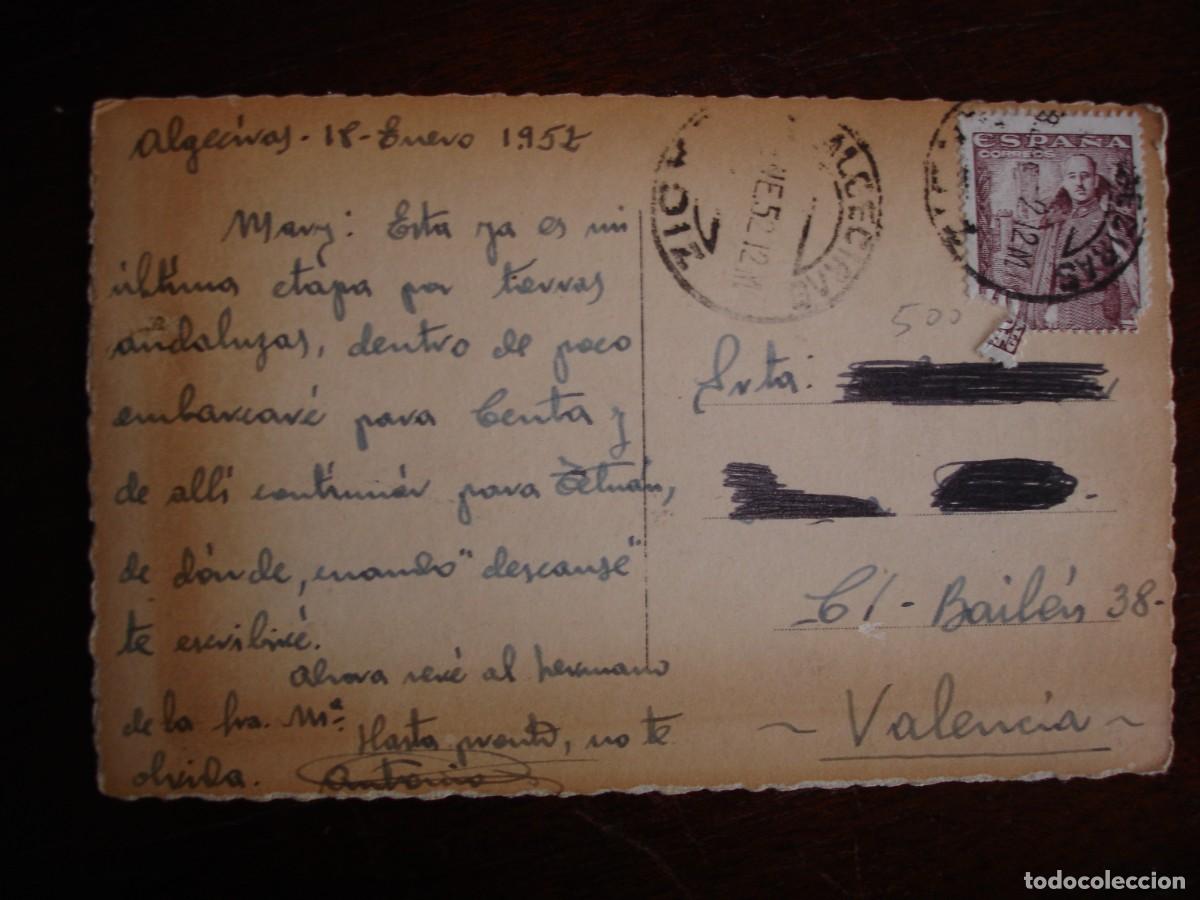 Algeciras - 18 - Enero 1.952
Mary: Esta ya es mi
última etapa por tierras
andaluzas, dentro de poco
embarcaré para Ceuta y
de allí continuár para Tetuán,
de dónde, cuando "descanse"
te escribiré.
Ahora veré al hermano
de la Sra. Mª.
Hasta pronto, no te
olvida.
Antonio
CADIZ
ALGECIRAS
NE.52.12M
ESPAÑA
CORREOS
2.12M
ALGECIRAS
500
Srta:
C/ - Bailén 38 -
~ Valencia ~
todocoleccion